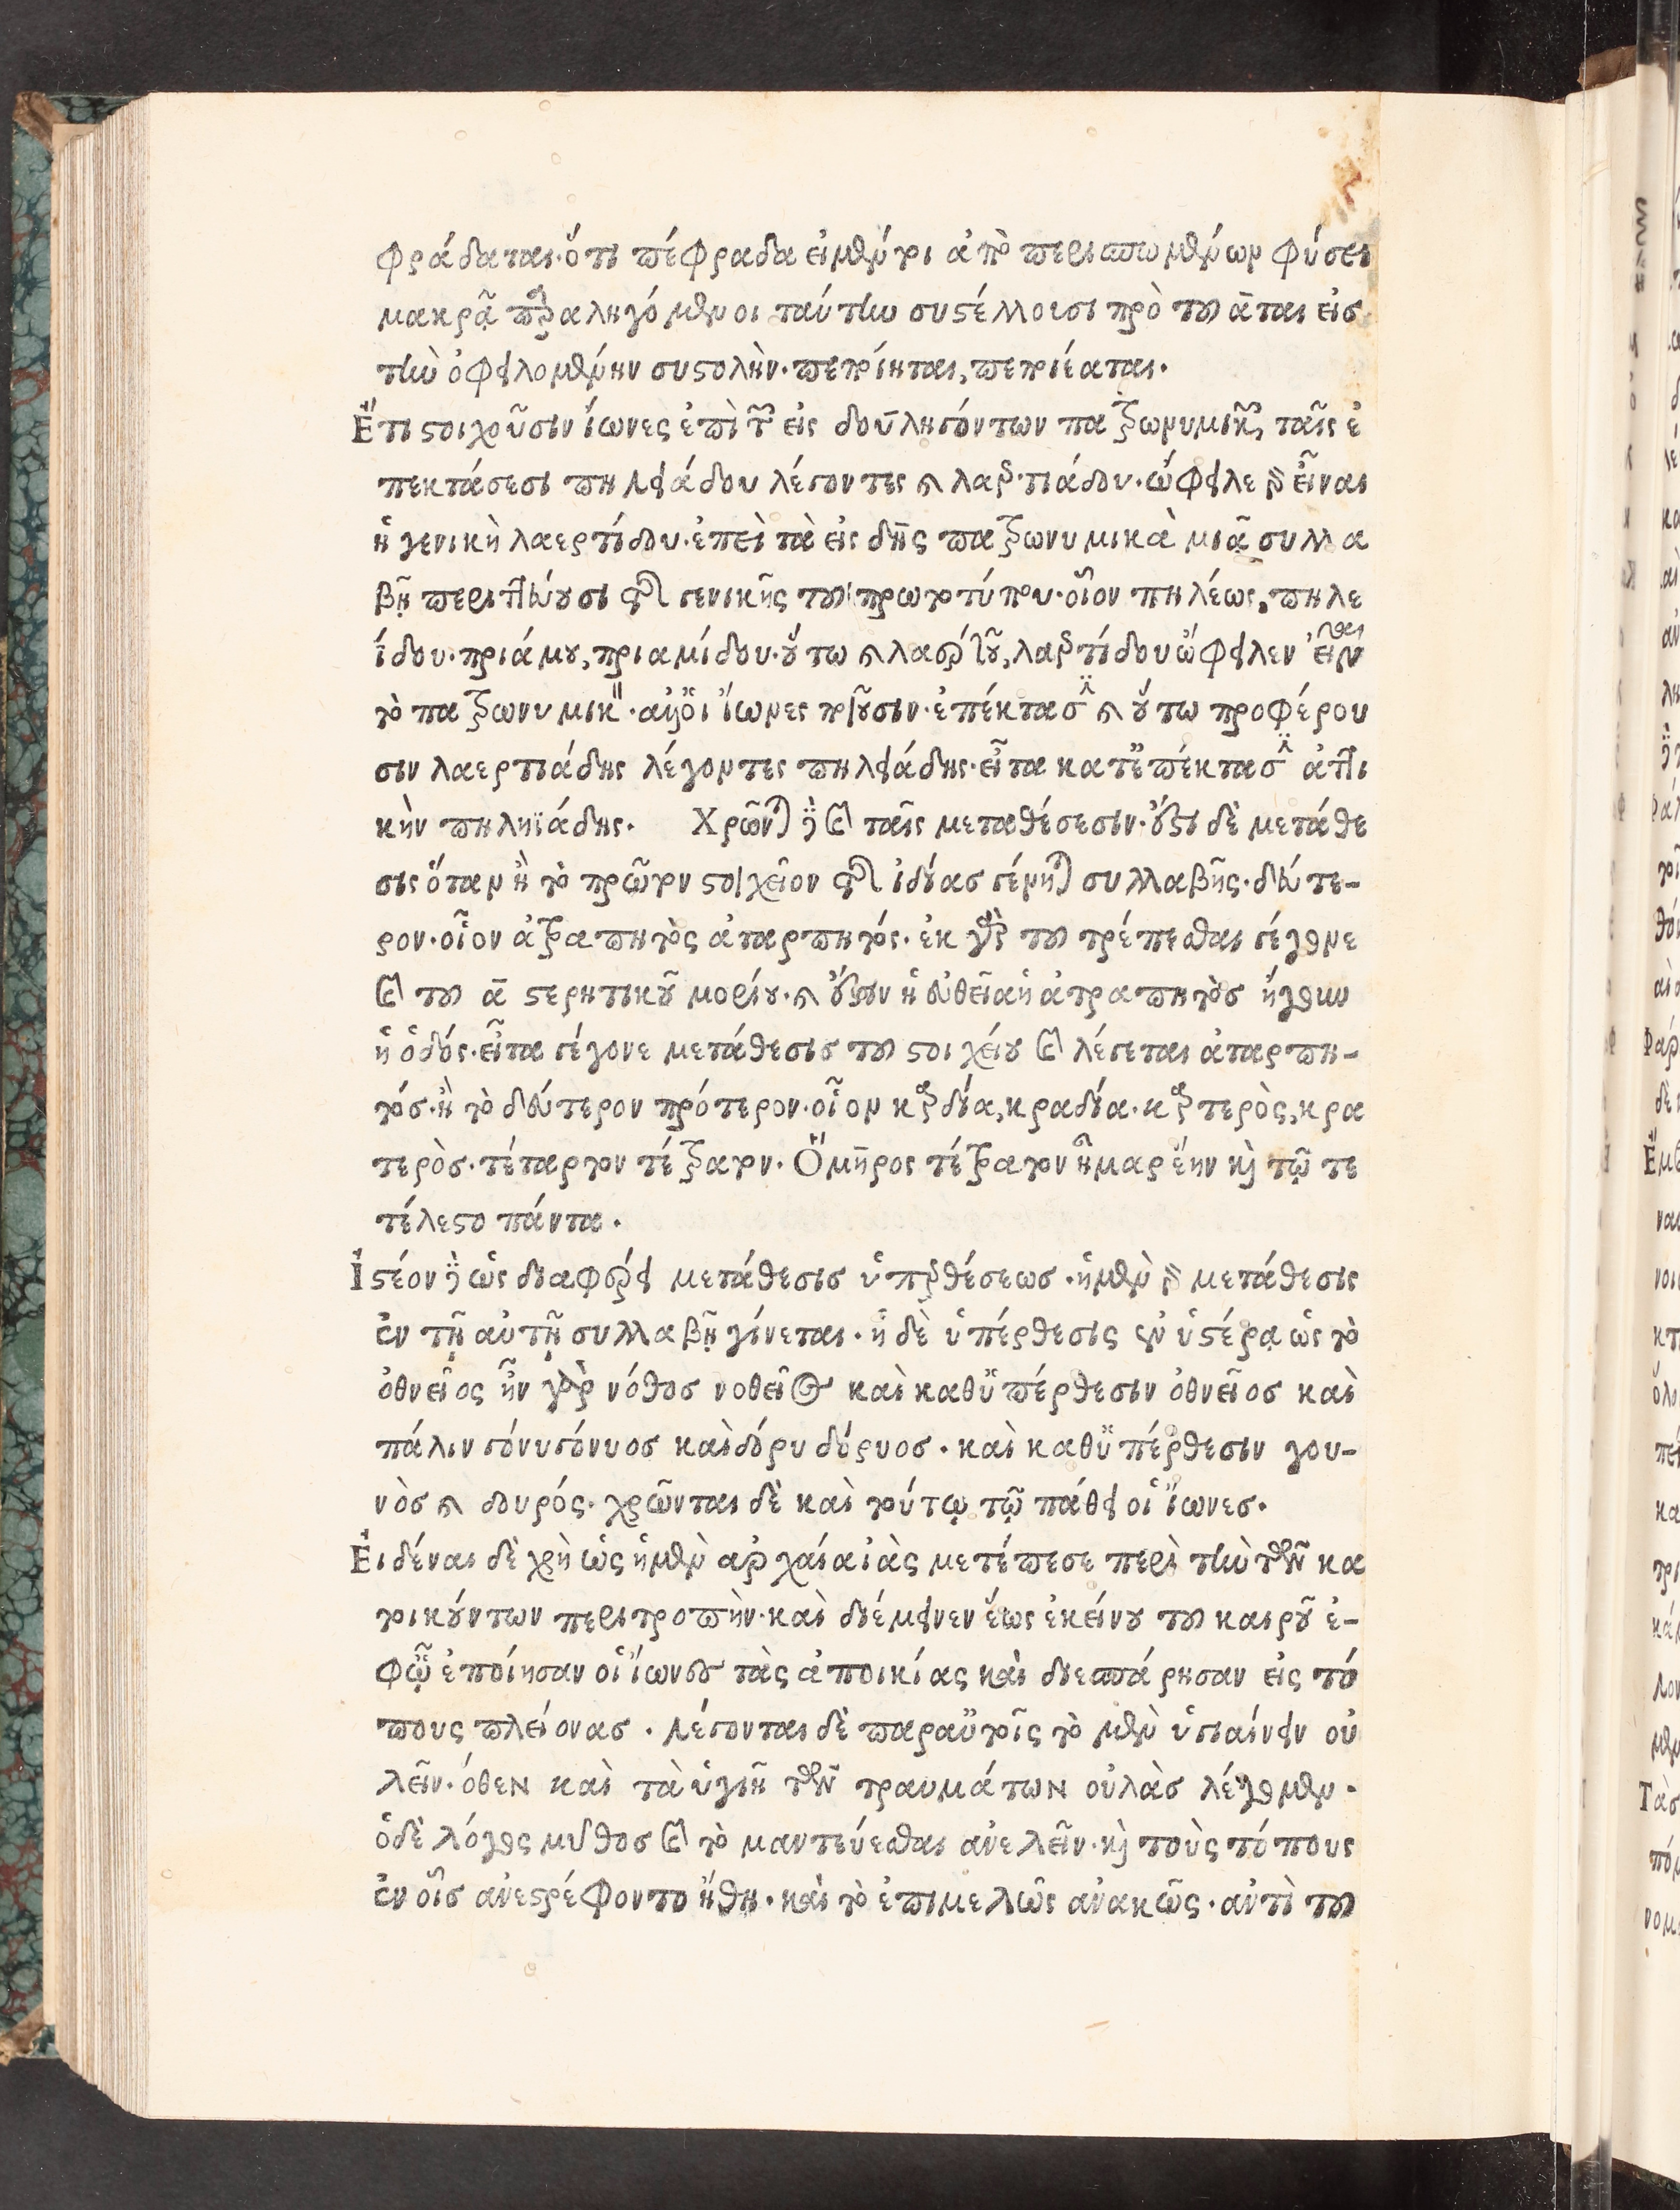 φράδαται· ὅτι πέφραδα εἰ μέντοι ἀπὸ περισπωμένων φύσει
μακρᾷ παραληγόμενοι ταύτην συστέλλουσι πρὸ τοῦ ᾱται εἰς
τὴν ὀφειλομένην συστολὴν· πεποίηται, πεποιέαται.
Ἔτι στοιχοῦσιν ἴωνες ἐπὶ τῶν εἰς δου ληγόντων πατρωνυμικῶν, ταῖς ἐ
πεκτάσεσι πηλειάδου λέγοντες καὶ λαερτιάδου· ὤφειλε γὰρ εἶναι
ἡ γενικὴ λαερτίδου· ἐπεὶ τὰ εἰς δης πατρωνυμικὰ μιᾷ συλλα
βῇ περιττεύουσι τῆς γενικῆς τοῦ πρωτοτύπου· οἷον πηλέως, πηλε
ΐδου· πριάμου, πριαμίδου· οὕτω καὶ λαέρτου, λαερτίδου ὤφειλεν εἶναι
τὸ πατρωνυμικὸν· ἀλλ' οἱ ἴωνες ποιοῦσιν· ἐπέκτασιν καὶ οὕτω προφέρου
σιν λαερτιάδης λέγοντες πηλειάδης· εἶτα κατ' ἐπέκτασιν ἀττι
κὴν πηληϊάδης. Χρῶνται δὲ καὶ ταῖς μεταθέσεσιν· ἔστι δὲ μετάθε
σις ὅταν ἢ τὸ πρῶτον στοιχεῖον τῆς ἰδίας γένηται συλλαβῆς· δεύτε-
ρον· οἷον ἀτραπητὸς ἀταρπητός· ἐκ γὰρ τοῦ τρέπεσθαι γέγονε
καὶ τοῦ ᾱ στερητικοῦ μορίου· καὶ ἔστιν ἡ εὐθεῖα ἡ ἀτραπητὸς ἤγουν
ἡ ὁδός· εἶτα γέγονε μετάθεσις τοῦ στοιχείου καὶ λέγεται ἀταρπη-
τός· ἢ τὸ δεύτερον πρότερον· οἷον καρδία, κραδία· καρτερὸς, κρα
τερὸς· τέταρτον τέτρατον· Ὅμηρος τέτρατον ἦμαρ ἔην καὶ τῷ τε
τέλεστο πάντα.
Ἰστέον δὲ ὡς διαφέρει μετάθεσις ὑπερθέσεως· ἡ μὲν γὰρ μετάθεσις
ἐν τῇ αὐτῇ συλλαβῇ γίνεται· ἡ δὲ ὑπέρθεσις ἐν ὑστέρᾳ ὡς τὸ
ὀθνεῖος ἦν γὰρ νόθος νοθεῖος καὶ καθ' ὑπέρθεσιν ὀθνεῖος καὶ
πάλιν γόνυ γόνυος καὶ δόρυ δόρυος· καὶ καθ' ὑπέρθεσιν γου-
νὸς καὶ δουρός· χρῶνται δὲ καὶ τούτῳ τῷ πάθει οἱ ἴωνες.
Εἰδέναι δὲ χρὴ ὡς ἡ μὲν ἀρχαία ἰὰς μετέπεσε περὶ τὴν τῶν κα
τοικούντων περιτροπὴν· καὶ διέμεινεν ἕως ἐκείνου τοῦ καιροῦ ἐ-
φ' ᾧ ἐποίησαν οἱ ἴωνες τὰς ἀποικίας καὶ διεσπάρησαν εἰς τό
πους πλείονας. λέγονται δὲ παρ' αὐτοῖς τὸ μὲν ὑγιαίνειν οὐ
λεῖν· ὅθεν καὶ τὰ ὑγιῆ τῶν τραυμάτων οὐλὰς λέγομεν·
ὁ δὲ λόγος μῦθος καὶ τὸ μαντεύεσθαι ἀνελεῖν· καὶ τοὺς τόπους
ἐν οἷς ἀνεστρέφοντο ἤθη· καὶ τὸ ἐπιμελῶς ἀνακῶς· ἀντὶ τοῦ